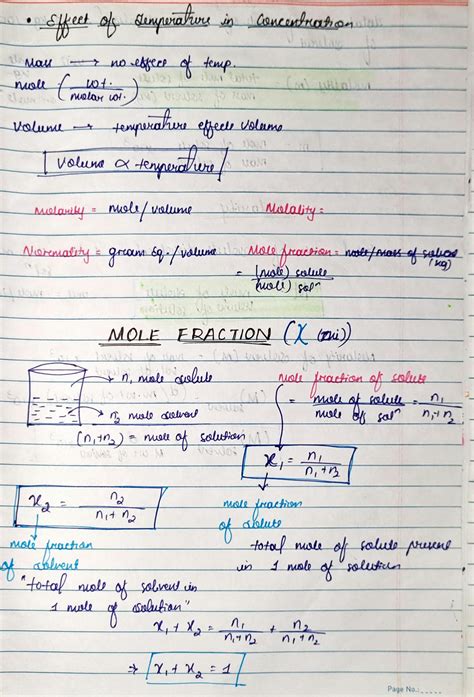 • Effect of Temperature in Concentration
Mass → no effect of temp.
mole (wt. / molar wt.)
Volume → temperature effects volume
Volume ∝ temperature
Molarity = mole/volume Molality =
Normality = gram Eq./volume Mole fraction = mole/mass of solvent (kg)
= (mole) solute / (mole) solⁿ
MOLE FRACTION (χ (xi))
→ n₁ mole solute
→ n₂ mole solvent
(n₁+n₂) = mole of solution
mole fraction of solute
= mole of solute / mole of solⁿ = n₁ / n₁+n₂
x₁ = n₁ / n₁+n₂
x₂ = n₂ / n₁+n₂
mole fraction
of solute
total mole of solute present
in 1 mole of solution
mole fraction
of solvent
"total mole of solvent in
1 mole of solution"
x₁ + x₂ = n₁ / n₁+n₂ + n₂ / n₁+n₂
⇒ x₁ + x₂ = 1
Page No.: